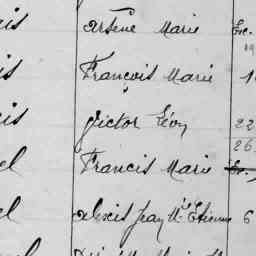 is Arsène Marie
is François Marie 1
is Victor Lévy 22
26
el Francis Marie
el Alexis Jean Mie Etienne 6